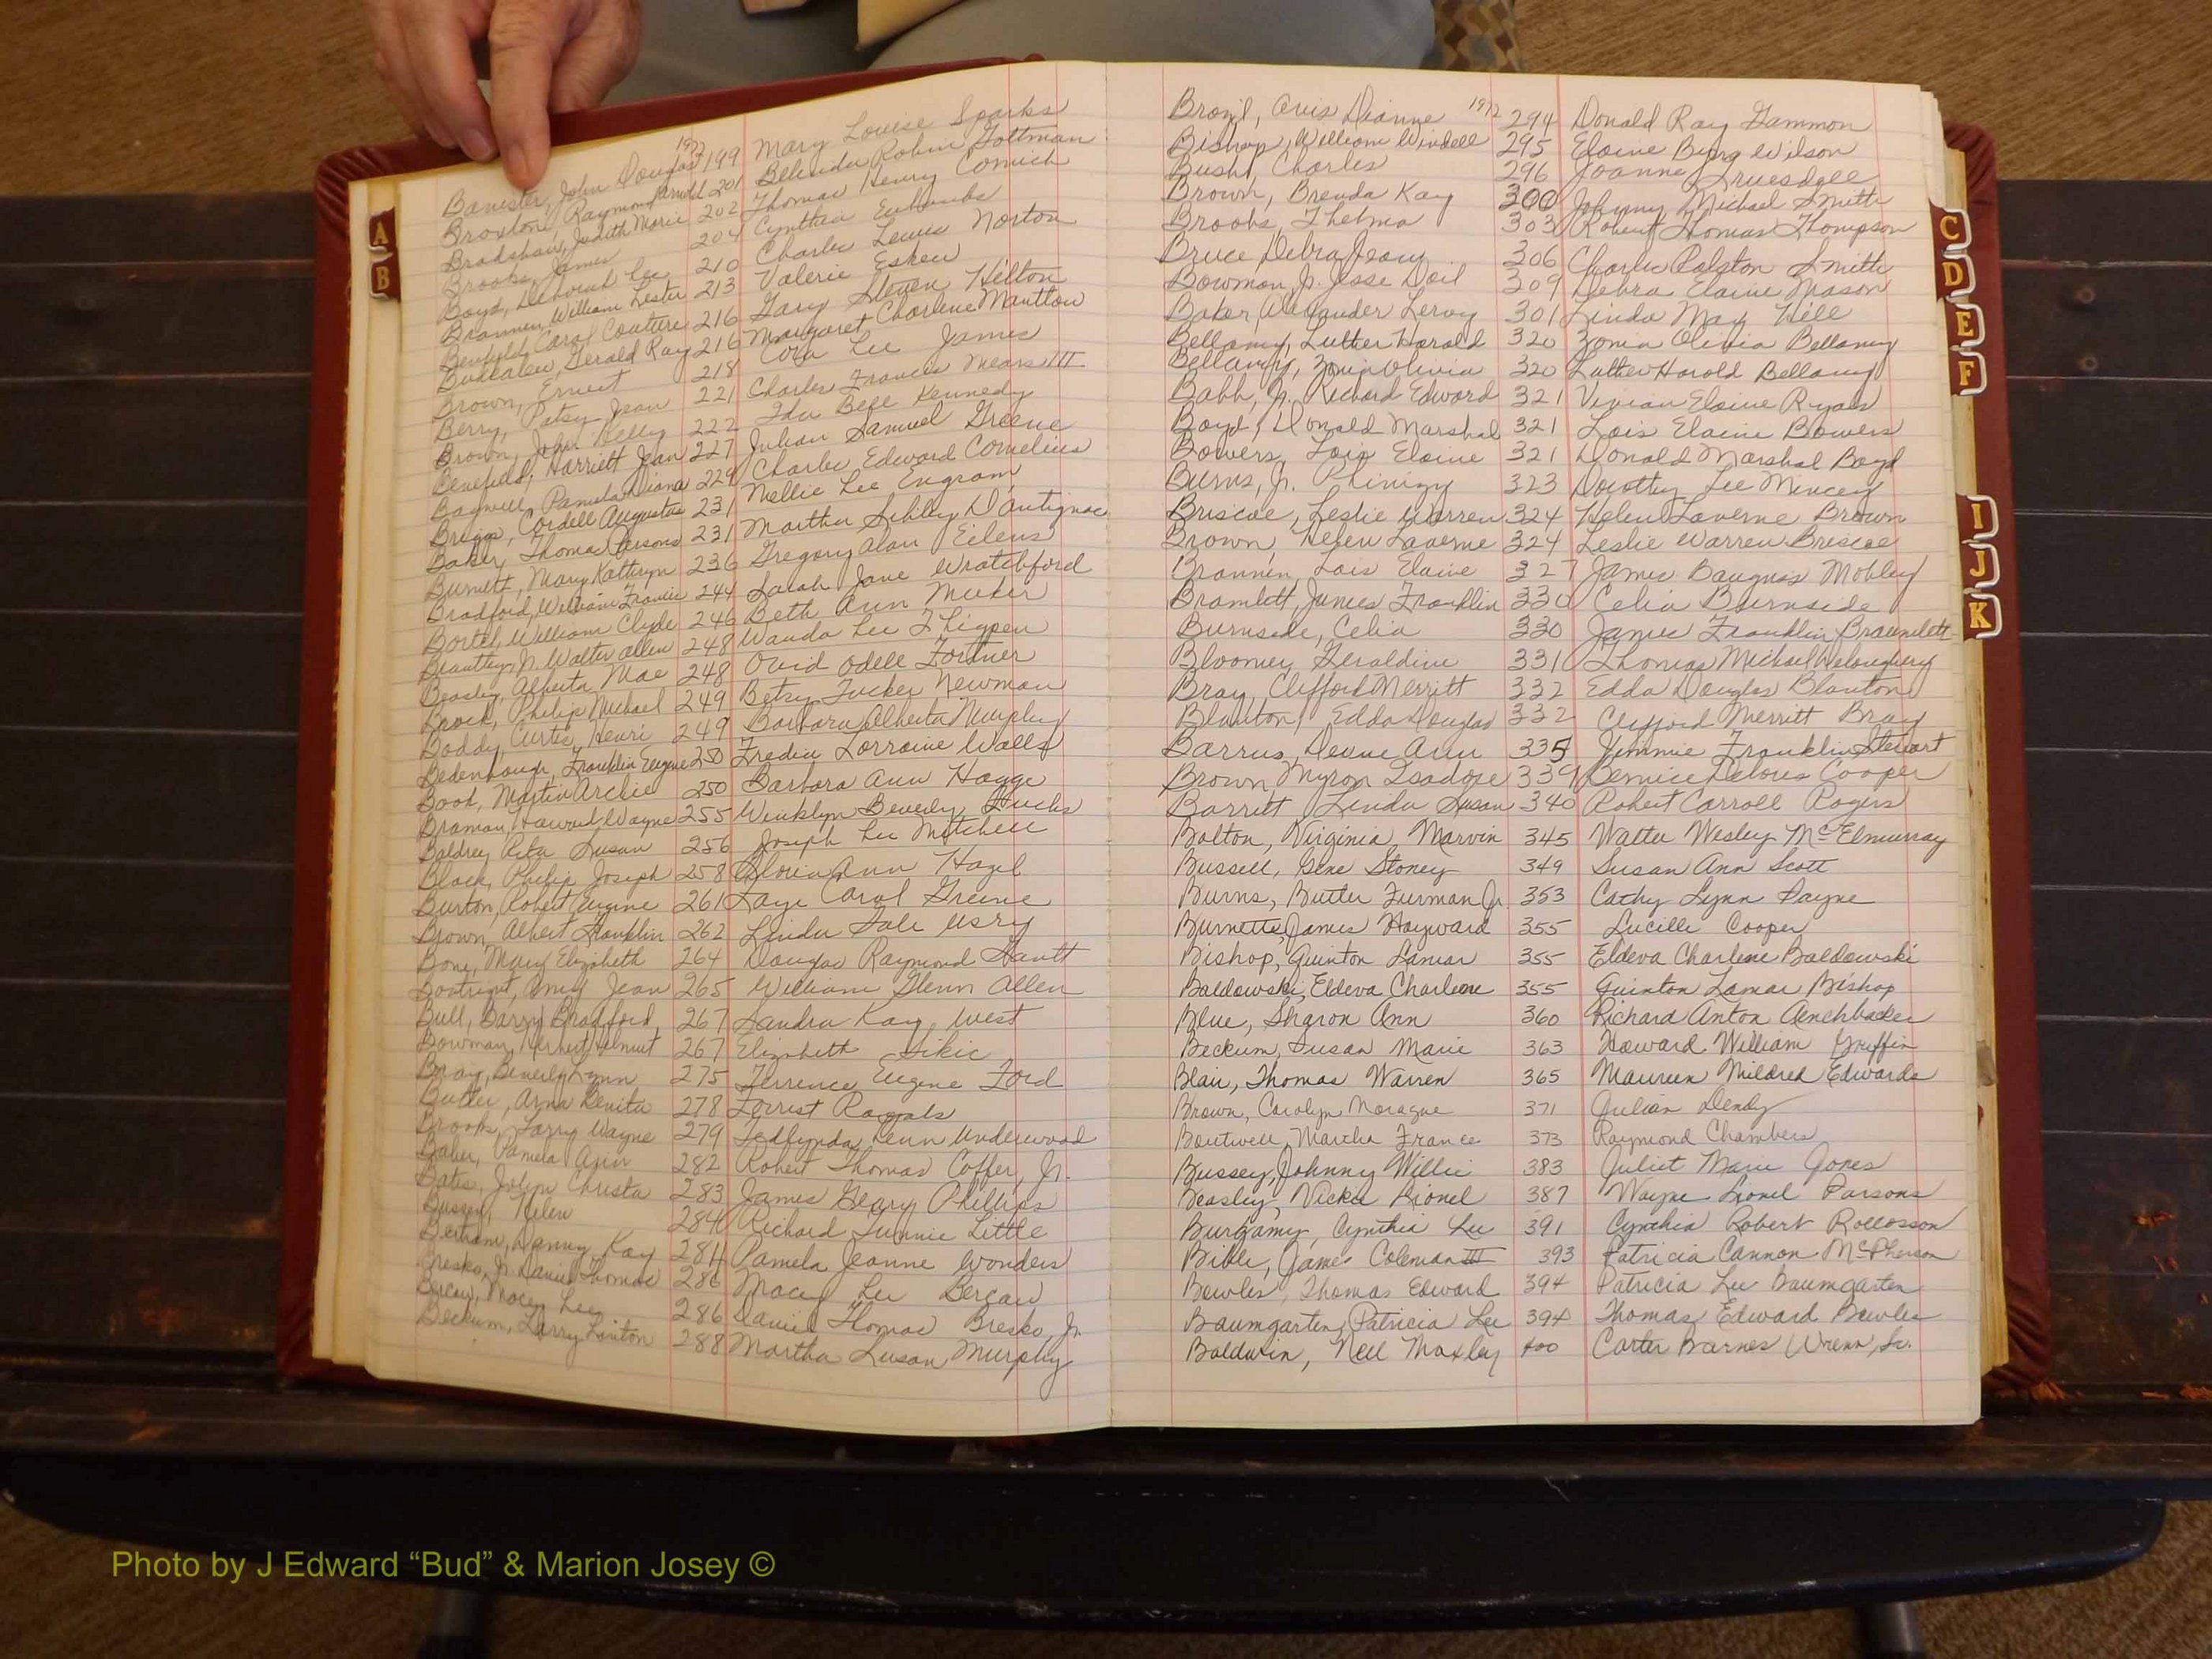 1972
Banister, John Douglas 199 Mary Louise Sparks
Broxton, Raymond Arnold 201 Belinda Robin Gottman
Bradshaw, Judith Marie 202 Thomas Henry Comich
Brooks, James 204 Cynthia Eubanks
Boyd, Deborah Lee 210 Charles Lewis Norton
Brannen, William Lester 213 Valerie Eskew
Benfield, Carol Couture 216 Gary Steven Hilton
Gerald Ray 216 Margaret Charlene
Brown, Ernest 218 Cora Lee James
Berry, Patsy Jean 221 Charles Francis Means III
Brown, John Kelly 222 Ida Bell Kennedy
Benefield, Harriett Jean 227 Julian Samuel Greene
Bagwell, Pamela Diana 229 Charles Edward Cornelius
Briggs, Cordell Augustus 231 Nellie Lee Engram
Baker, Thomas Parsons 231 Martha Sibley D'Antignac
Burnett, Mary Kathryn 236 Gregory Alan Eilens
Bradford, William Francis 244 Sarah Jane Wratchford
Bortel, William Clyde 246 Beth Ann Meeker
Brantley, Jr. Walter Allen 248 Wanda Lee Thigpen
Beasley, Alberta Mae 248 Ovid Odell Fortner
Philip Michael 249 Betsy Tucker Newman
Boddy, Curtis Henri 249 Barbara Alberta Murphy
Bedenbaugh, Franklin Eugene 250 Fredia Lorraine Walls
Book, Martin Archie 250 Barbara Ann Hogge
Braman, Howard Wayne 255 Winklyn Beverly Hucks
Baldrey, Rita Susan 256 Joseph Lee Mitchell
Black, Philip Joseph 258 Gloria Ann Hazel
Burton, Robert Eugene 261 Faye Carol Greene
Brown, Albert Franklin 262 Linda Dale Usry
Bone, Mary Elizabeth 264 Douglas Raymond Gantt
Boatright, Amy Jean 265 William Glenn Allen
Bull, Barry Bradford 267 Sandra Kay West
Bowman, Herbert Helmut 267 Elizabeth Sikic
Bray, Beverly Lynn 275 Terrence Eugene Ford
Butler, Anna Renita 278 Forrest
Brooks, Larry Wayne 279 Tedlynda Lenn Underwood
Baker, Pamela Ann 282 Robert Thomas Coffer, Jr.
Bates, Jolyn Christa 283 James Geary Phillips
Bussey, Helen 284 Richard Sunnie Little
Bertram, Danny Ray 284 Pamela Jeanne Wonders
Bresko, Jr. Daniel Thomas 286 Macey Lee Bercaw
Bercaw, Macey Lee 286 Daniel Thomas Bresko, Jr.
Beckum, Larry Linton 288 Martha Susan Murphy
A
B
1972
Brazil, Avis Dianne 294 Donald Ray Gammon
Bishop, William Windell 295 Elaine Byrg Wilson
Bush, Charles 296 Joanne Truesdell
Brown, Brenda Kay 300 Johnny Michael Smith
Brooks, Thelma 303 Robert Thomas Thompson
Bruce, Debra Jean 306 Charles Ralston Smith
Bowman, Jr. Jesse Doil 309 Debra Elaine Mason
Baker, Alexander Leroy 301 Linda May Hill
Bellamy, Luther Harold 320 Zonia Olivia Bellamy
Bellamy, Zonia Olivia 320 Luther Harold Bellamy
Babb, Jr. Richard Edward 321 Vivian Elaine Ryals
Boyd, Donald Marshal 321 Lois Elaine Bowers
Bowers, Lois Elaine 321 Donald Marshal Boyd
Burns, Jr. Phinizy 323 Dorothy Lee Mincey
Briscoe, Leslie Warren 324 Helen Laverne Brown
Brown, Helen Laverne 324 Leslie Warren Briscoe
Brannen, Lois Elaine 327 James Bauguss Mobley
Bramlett, James Franklin 330 Celia Burnside
Burnside, Celia 330 James Franklin Bramlett
Bloomer, Geraldine 331 Thomas Michael
Bray, Clifford Merritt 332 Edda Douglas Blanton
Blanton, Edda Douglas 332 Clifford Merritt Bray
Barrus, Deane Ann 335 Jimmie Franklin Stewart
Brown, Myron Isadore 339 Bernice Delores Cooper
Barritt, Linda Susan 340 Robert Carroll Rogers
Bolton, Virginia Marvin 345 Walter Wesley McElmurray
Bussell, Gene Stoney 349 Susan Ann Scott
Burns, Butler Furman Jr. 353 Cathy Lynn Payne
Burnette, James Hayward 355 Lucille Cooper
Bishop, Quinton Lamar 355 Eldeva Charlene Baldowski
Baldowski, Eldeva Charlene 355 Quinton Lamar Bishop
Blue, Sharon Ann 360 Richard Anton Aenchbacker
Beckum, Susan Marie 363 Howard William Griffin
Blair, Thomas Warren 365 Maureen Mildred Edwards
Brown, Carolyn Moragne 371 Julian Dendy
Boutwell, Martha France 373 Raymond Chambers
Bussey, Johnny Willie 383 Juliet Marie Jones
Beasley, Vickie Lionel 387 Wayne Lionel Parsons
Burgamy, Cynthia Lee 391 Cynthia Robert Rollosson
Bible, James Coleman III 393 Patricia Cannon McPherson
Bowles, Thomas Edward 394 Patricia Lee Baumgarten
Baumgarten, Patricia Lee 394 Thomas Edward Bowles
Baldwin, Nell Maxley 400 Carter Barnes Wrenn, Sr.
C
D
E
F
I
J
K
Photo by J Edward “Bud” & Marion Josey ©